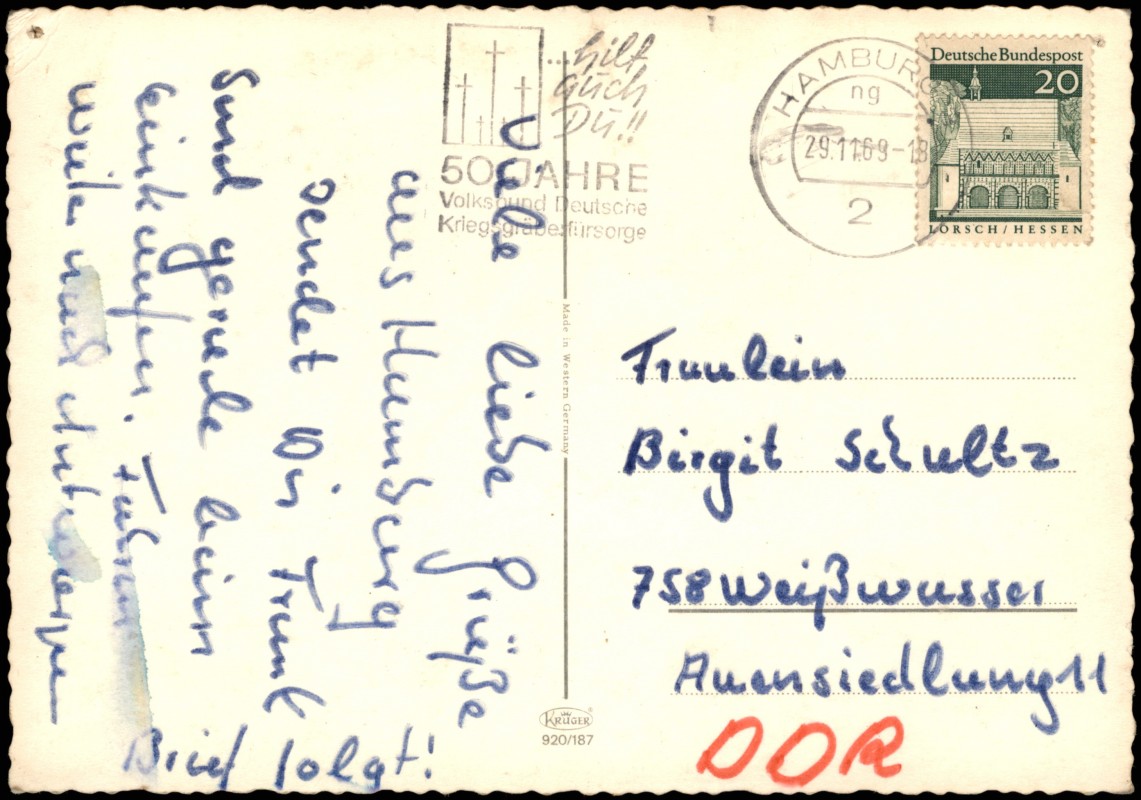 ...hilf
auch
Du!!
50 JAHRE
Volksbund Deutsche
Kriegsgräberfürsorge
HAMBURG
ng
29.11.69-18
2
Deutsche Bundespost
20
LORSCH / HESSEN
Viele liebe Grüße
aus Hamburg
sendet Dir Frank
Sind gerade beim
einkaufen. Fahren
weiter nach Antwerpen
Brief folgt!
Made in Western Germany
KRÜGER
920/187
Fräulein
Birgit Schultz
758 Weißwasser
Auensiedlung 11
DDR